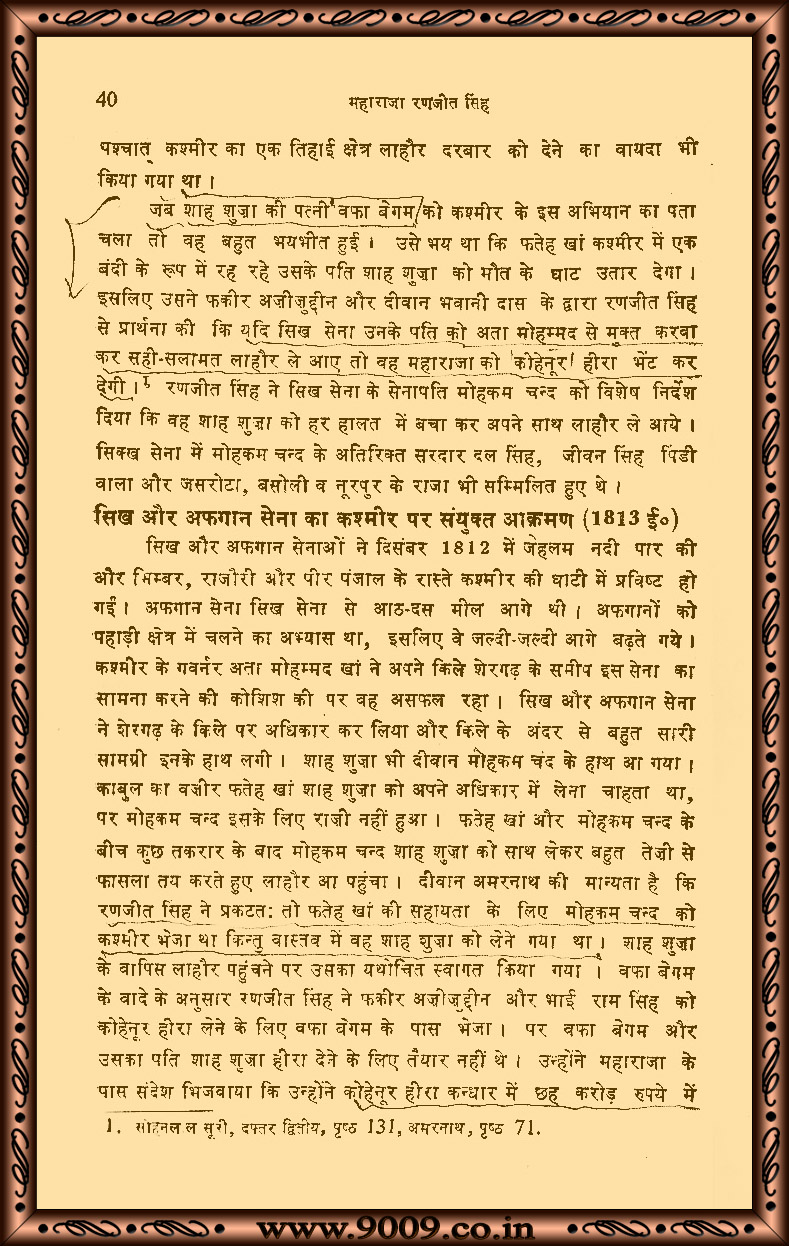 40 महाराजा रणजीत सिंह
पश्चात् कश्मीर का एक तिहाई क्षेत्र लाहौर दरबार को देने का वायदा भी
किया गया था ।
जब शाह शुज़ा की पत्नी वफा बेगम को कश्मीर के इस अभियान का पता
चला तो वह बहुत भयभीत हुई । उसे भय था कि फतेह खां कश्मीर में एक
बंदी के रूप में रह रहे उसके पति शाह शुज़ा को मौत के घाट उतार देगा ।
इसलिए उसने फकीर अज़ीजुद्दीन और दीवान भवानी दास के द्वारा रणजीत सिंह
से प्रार्थना की कि यदि सिख सेना उनके पति को अता मोहम्मद से मुक्त करवा
कर सही-सलामत लाहौर ले आए तो वह महाराजा को 'कोहेनूर' हीरा भेंट कर
देगी ।¹ रणजीत सिंह ने सिख सेना के सेनापति मोहकम चन्द को विशेष निर्देश
दिया कि वह शाह शुज़ा को हर हालत में बचा कर अपने साथ लाहौर ले आये ।
सिक्ख सेना में मोहकम चन्द के अतिरिक्त सरदार दल सिंह, जीवन सिंह पिंडी
वाला और जसरोटा, बसोली व नूरपुर के राजा भी सम्मिलित हुए थे ।
सिख और अफगान सेना का कश्मीर पर संयुक्त आक्रमण (1813 ई०)
सिख और अफगान सेनाओं ने दिसंबर 1812 में जेहलम नदी पार की
और भिम्बर, राजौरी और पीर पंजाल के रास्ते कश्मीर की घाटी में प्रविष्ट हो
गईं । अफगान सेना सिख सेना से आठ-दस मील आगे थी । अफगानों को
पहाड़ी क्षेत्र में चलने का अभ्यास था, इसलिए वे जल्दी-जल्दी आगे बढ़ते गये ।
कश्मीर के गवर्नर अता मोहम्मद खां ने अपने किले शेरगढ़ के समीप इस सेना का
सामना करने की कोशिश की पर वह असफल रहा । सिख और अफगान सेना
ने शेरगढ़ के किले पर अधिकार कर लिया और किले के अंदर से बहुत सारी
सामग्री इनके हाथ लगी । शाह शुज़ा भी दीवान मोहकम चंद के हाथ आ गया ।
काबुल का वज़ीर फतेह खां शाह शुज़ा को अपने अधिकार में लेना चाहता था,
पर मोहकम चन्द इसके लिए राज़ी नहीं हुआ । फतेह खां और मोहकम चन्द के
बीच कुछ तकरार के बाद मोहकम चन्द शाह शुज़ा को साथ लेकर बहुत तेज़ी से
फासला तय करते हुए लाहौर आ पहुंचा । दीवान अमरनाथ की मान्यता है कि
रणजीत सिंह ने प्रकटत: तो फतेह खां की सहायता के लिए मोहकम चन्द को
कश्मीर भेजा था किन्तु वास्तव में वह शाह शुज़ा को लेने गया था । शाह शुज़ा
के वापिस लाहौर पहुंचने पर उसका यथोचित स्वागत किया गया । वफा बेगम
के वादे के अनुसार रणजीत सिंह ने फकीर अज़ीजुद्दीन और भाई राम सिंह को
कोहेनूर हीरा लेने के लिए वफा बेगम के पास भेजा । पर वफा बेगम और
उसका पति शाह शुज़ा हीरा देने के लिए तैयार नहीं थे । उन्होंने महाराजा के
पास संदेश भिजवाया कि उन्होंने कोहेनूर हीरा कन्धार में छह करोड़ रुपये में
1. सोहनलाल सूरी, दफ्तर द्वितीय, पृष्ठ 131, अमरनाथ, पृष्ठ 71.
www.9009.co.in